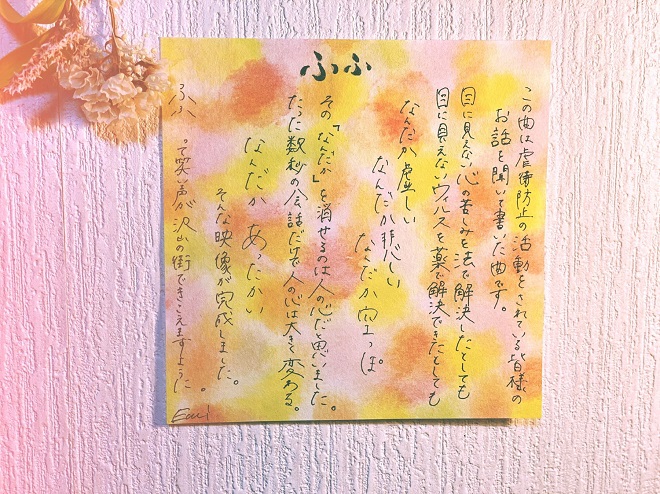 ふふ
この曲は虐待防止の活動をされている皆様の
お話を聞いて書いた曲です。
目に見えない心の苦しみを法で解決したとしても
目に見えないウィルスを薬で解決できたとしても
なんだか虚しい
なんだか悲しい
なんだか空っぽ。
その「なんだか」を消せるのは人の心だと思いました。
たった数秒の会話だけで人の心は大きく変わる。
なんだか あったかい
そんな映像が完成しました。
ふふ って笑い声が沢山の街できこえますように。